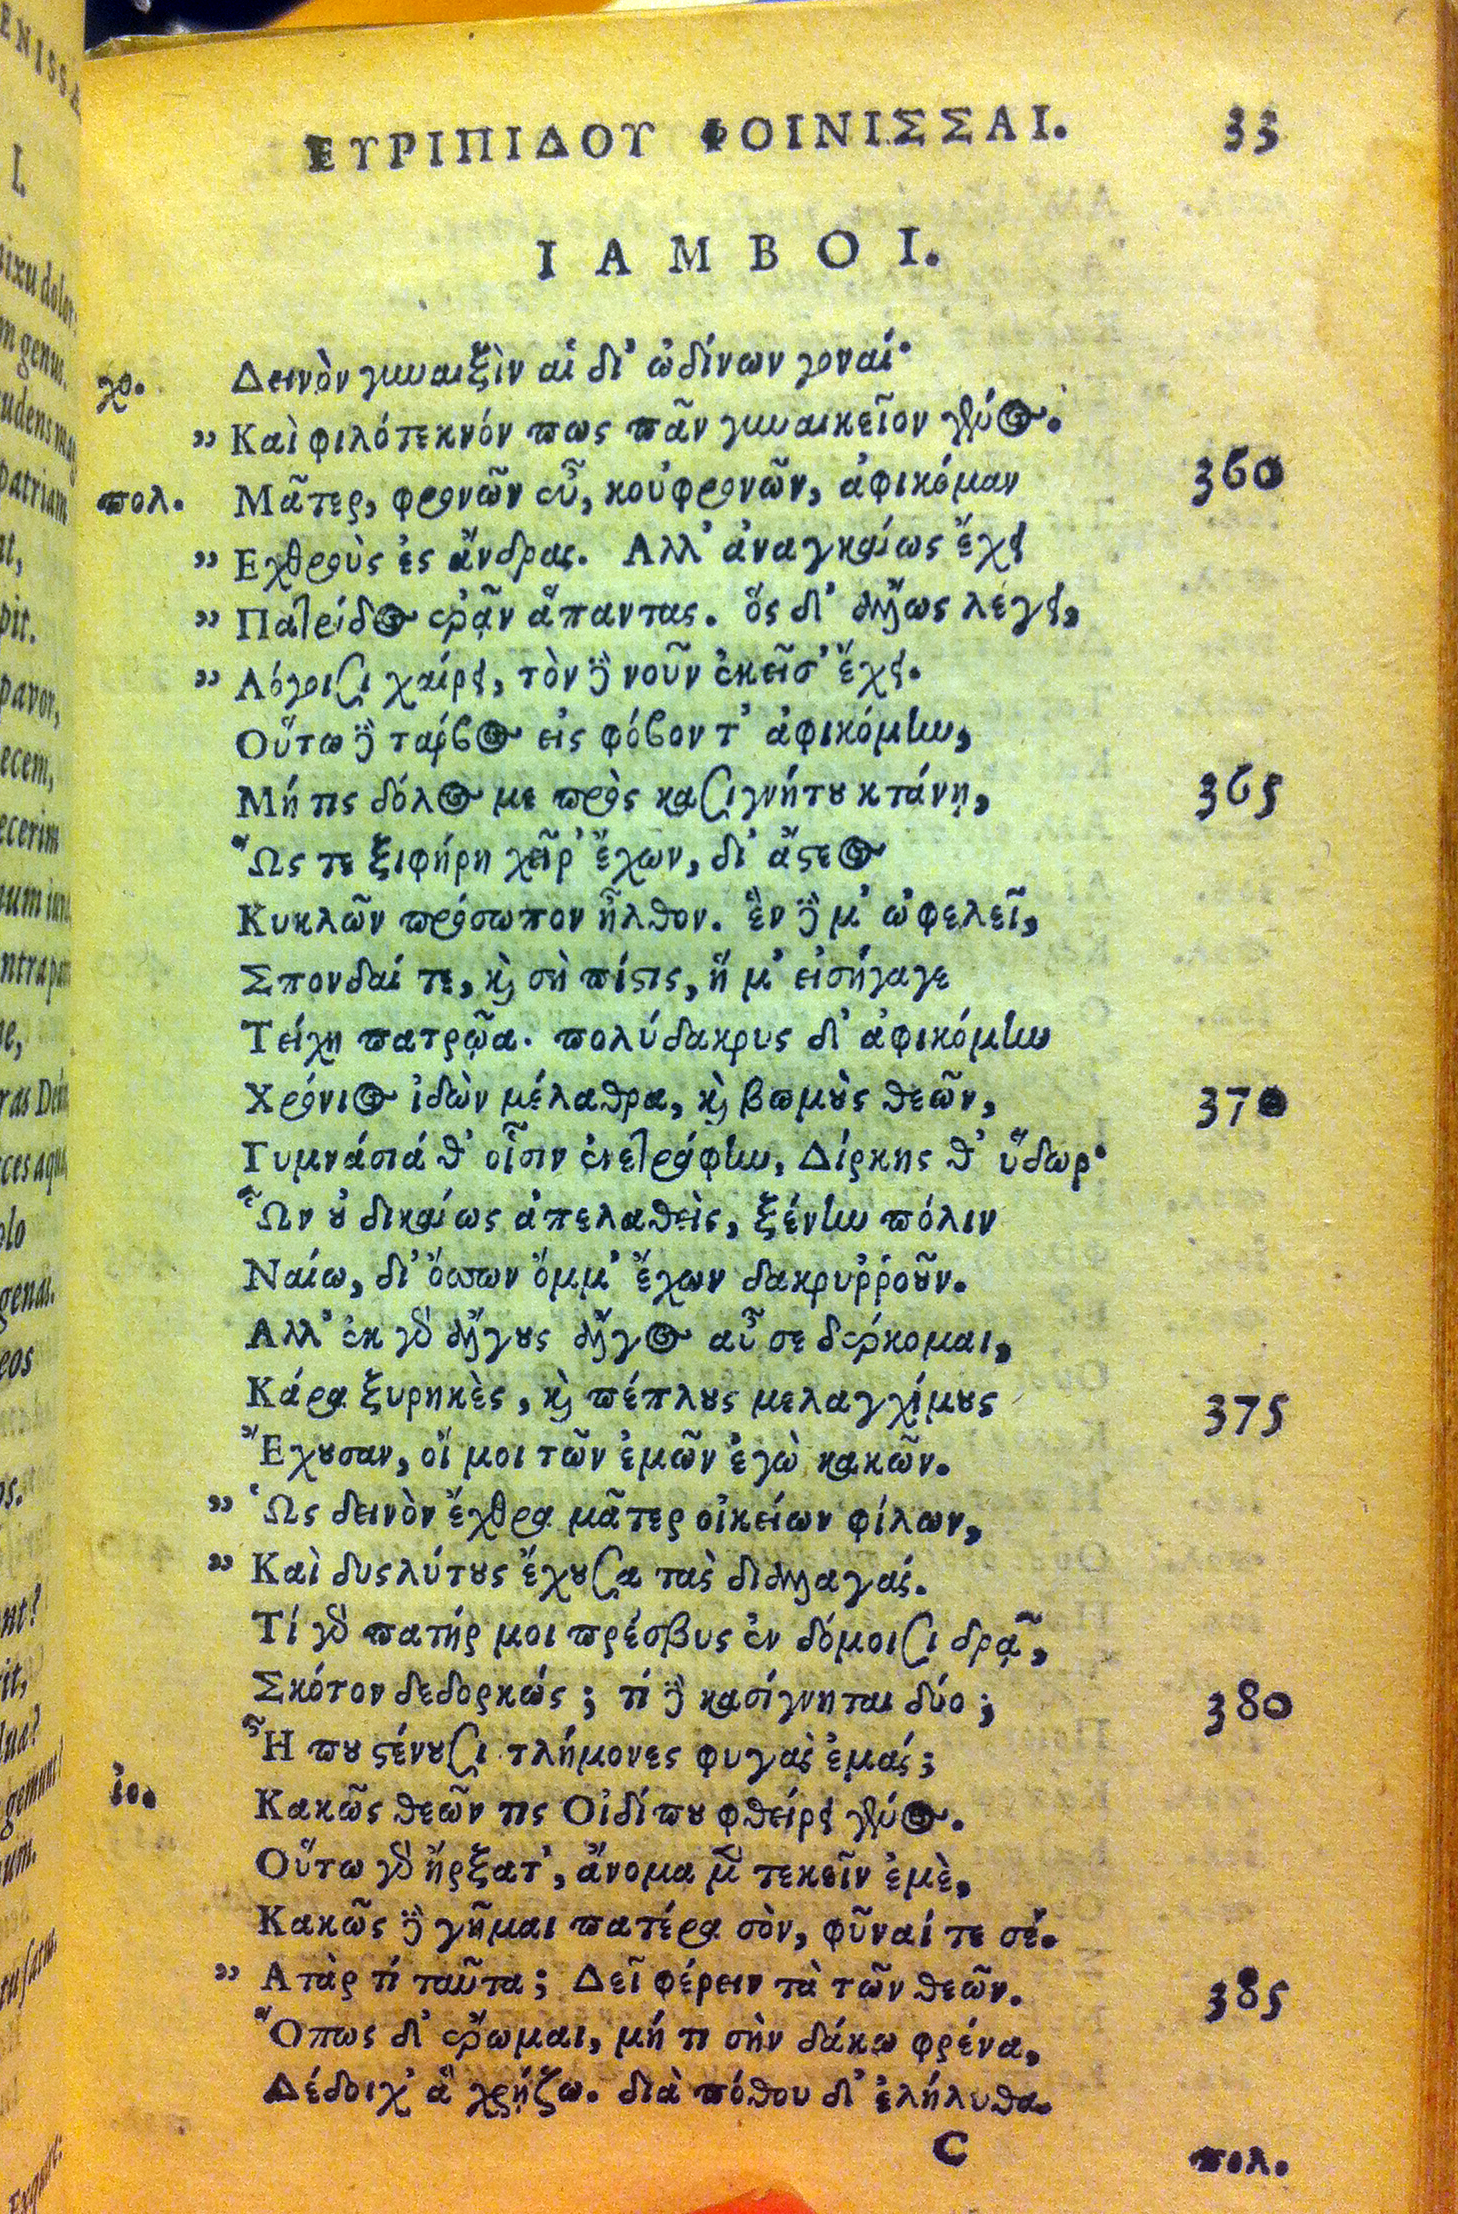 ΕΥΡΙΠΙΔΟΥ ΦΟΙΝΙΣΣΑΙ. 33
ΙΑΜΒΟΙ.
χο. Δεινὸν γυναιξὶν αἱ δι' ὠδίνων γοναί·
„ Καὶ φιλότεκνόν πως πᾶν γυναικεῖον γένος.
πολ. Μᾶτερ, φρονῶν εὖ, κοὐφρονῶν, ἀφικόμαν 360
„ Εχθροὺς ἐς ἄνδρας. Αλλ' ἀναγκαίως ἔχει
„ Πατρίδος ἐρᾷν ἅπαντας. ὅς δ' ἄλλως λέγει,
„ Λόγοισι χαίρει, τὸν δὲ νοῦν ἐκεῖσ' ἔχει.
Οὕτω δὲ τάρβος εἰς φόβον τ' ἀφικόμην,
Μή τις δόλος με πρὸς κασιγνήτου κτάνῃ, 365
Ὥς τε ξιφήρη χεῖρ' ἔχων, δι' ἄστεος
Κυκλῶν πρόσωπον ἦλθον. ἓν δὲ μ' ὠφελεῖ,
Σπονδαί τε, καὶ σὴ πίστις, ἥ μ' εἰσήγαγε
Τείχη πατρῷα. πολύδακρυς δ' ἀφικόμην
Χρόνιος ἰδὼν μέλαθρα, καὶ βωμοὺς θεῶν, 370
Γυμνάσιά θ' οἷσιν ἐνετράφην, Δίρκης θ' ὕδωρ·
Ὧν οὐ δικαίως ἀπελαθεὶς, ξένην πόλιν
Ναίω, δι' ὅσσων ὄμμ' ἔχων δακρυῤῥοῦν.
Αλλ' ἐκ γὰρ ἄλγους ἄλγος αὖ σε δέρκομαι,
Κάρα ξυρηκὲς, καὶ πέπλους μελαγχίμους 375
Ἔχουσαν, οἴ μοι τῶν ἐμῶν ἐγὼ κακῶν.
„ Ὡς δεινὸν ἔχθρα μᾶτερ οἰκείων φίλων,
„ Καὶ δυςλύτους ἔχουσα τὰς διαλλαγάς.
Τί γὰρ πατήρ μοι πρέσβυς ἐν δόμοισι δρᾷ,
Σκότον δεδορκώς; τί δὲ κασίγνηται δύο; 380
Ἦ που στένουσι τλήμονες φυγὰς ἐμάς;
ἰο. Κακῶς θεῶν τις Οἰδίπου φθείρει γένος.
Οὕτω γὰρ ἤρξατ', ἄνομα μὲν τεκεῖν ἐμὲ,
Κακῶς δὲ γῆμαι πατέρα σὸν, φῦναί τε σέ.
„ Ατὰρ τί ταῦτα; Δεῖ φέρειν τὰ τῶν θεῶν. 385
Ὅπως δ' ἔρωμαι, μή τι σὴν δάκω φρένα,
Δέδοιχ' ἃ χρῄζω. διὰ πόθου δ' ἐλήλυθα.
C πολ.